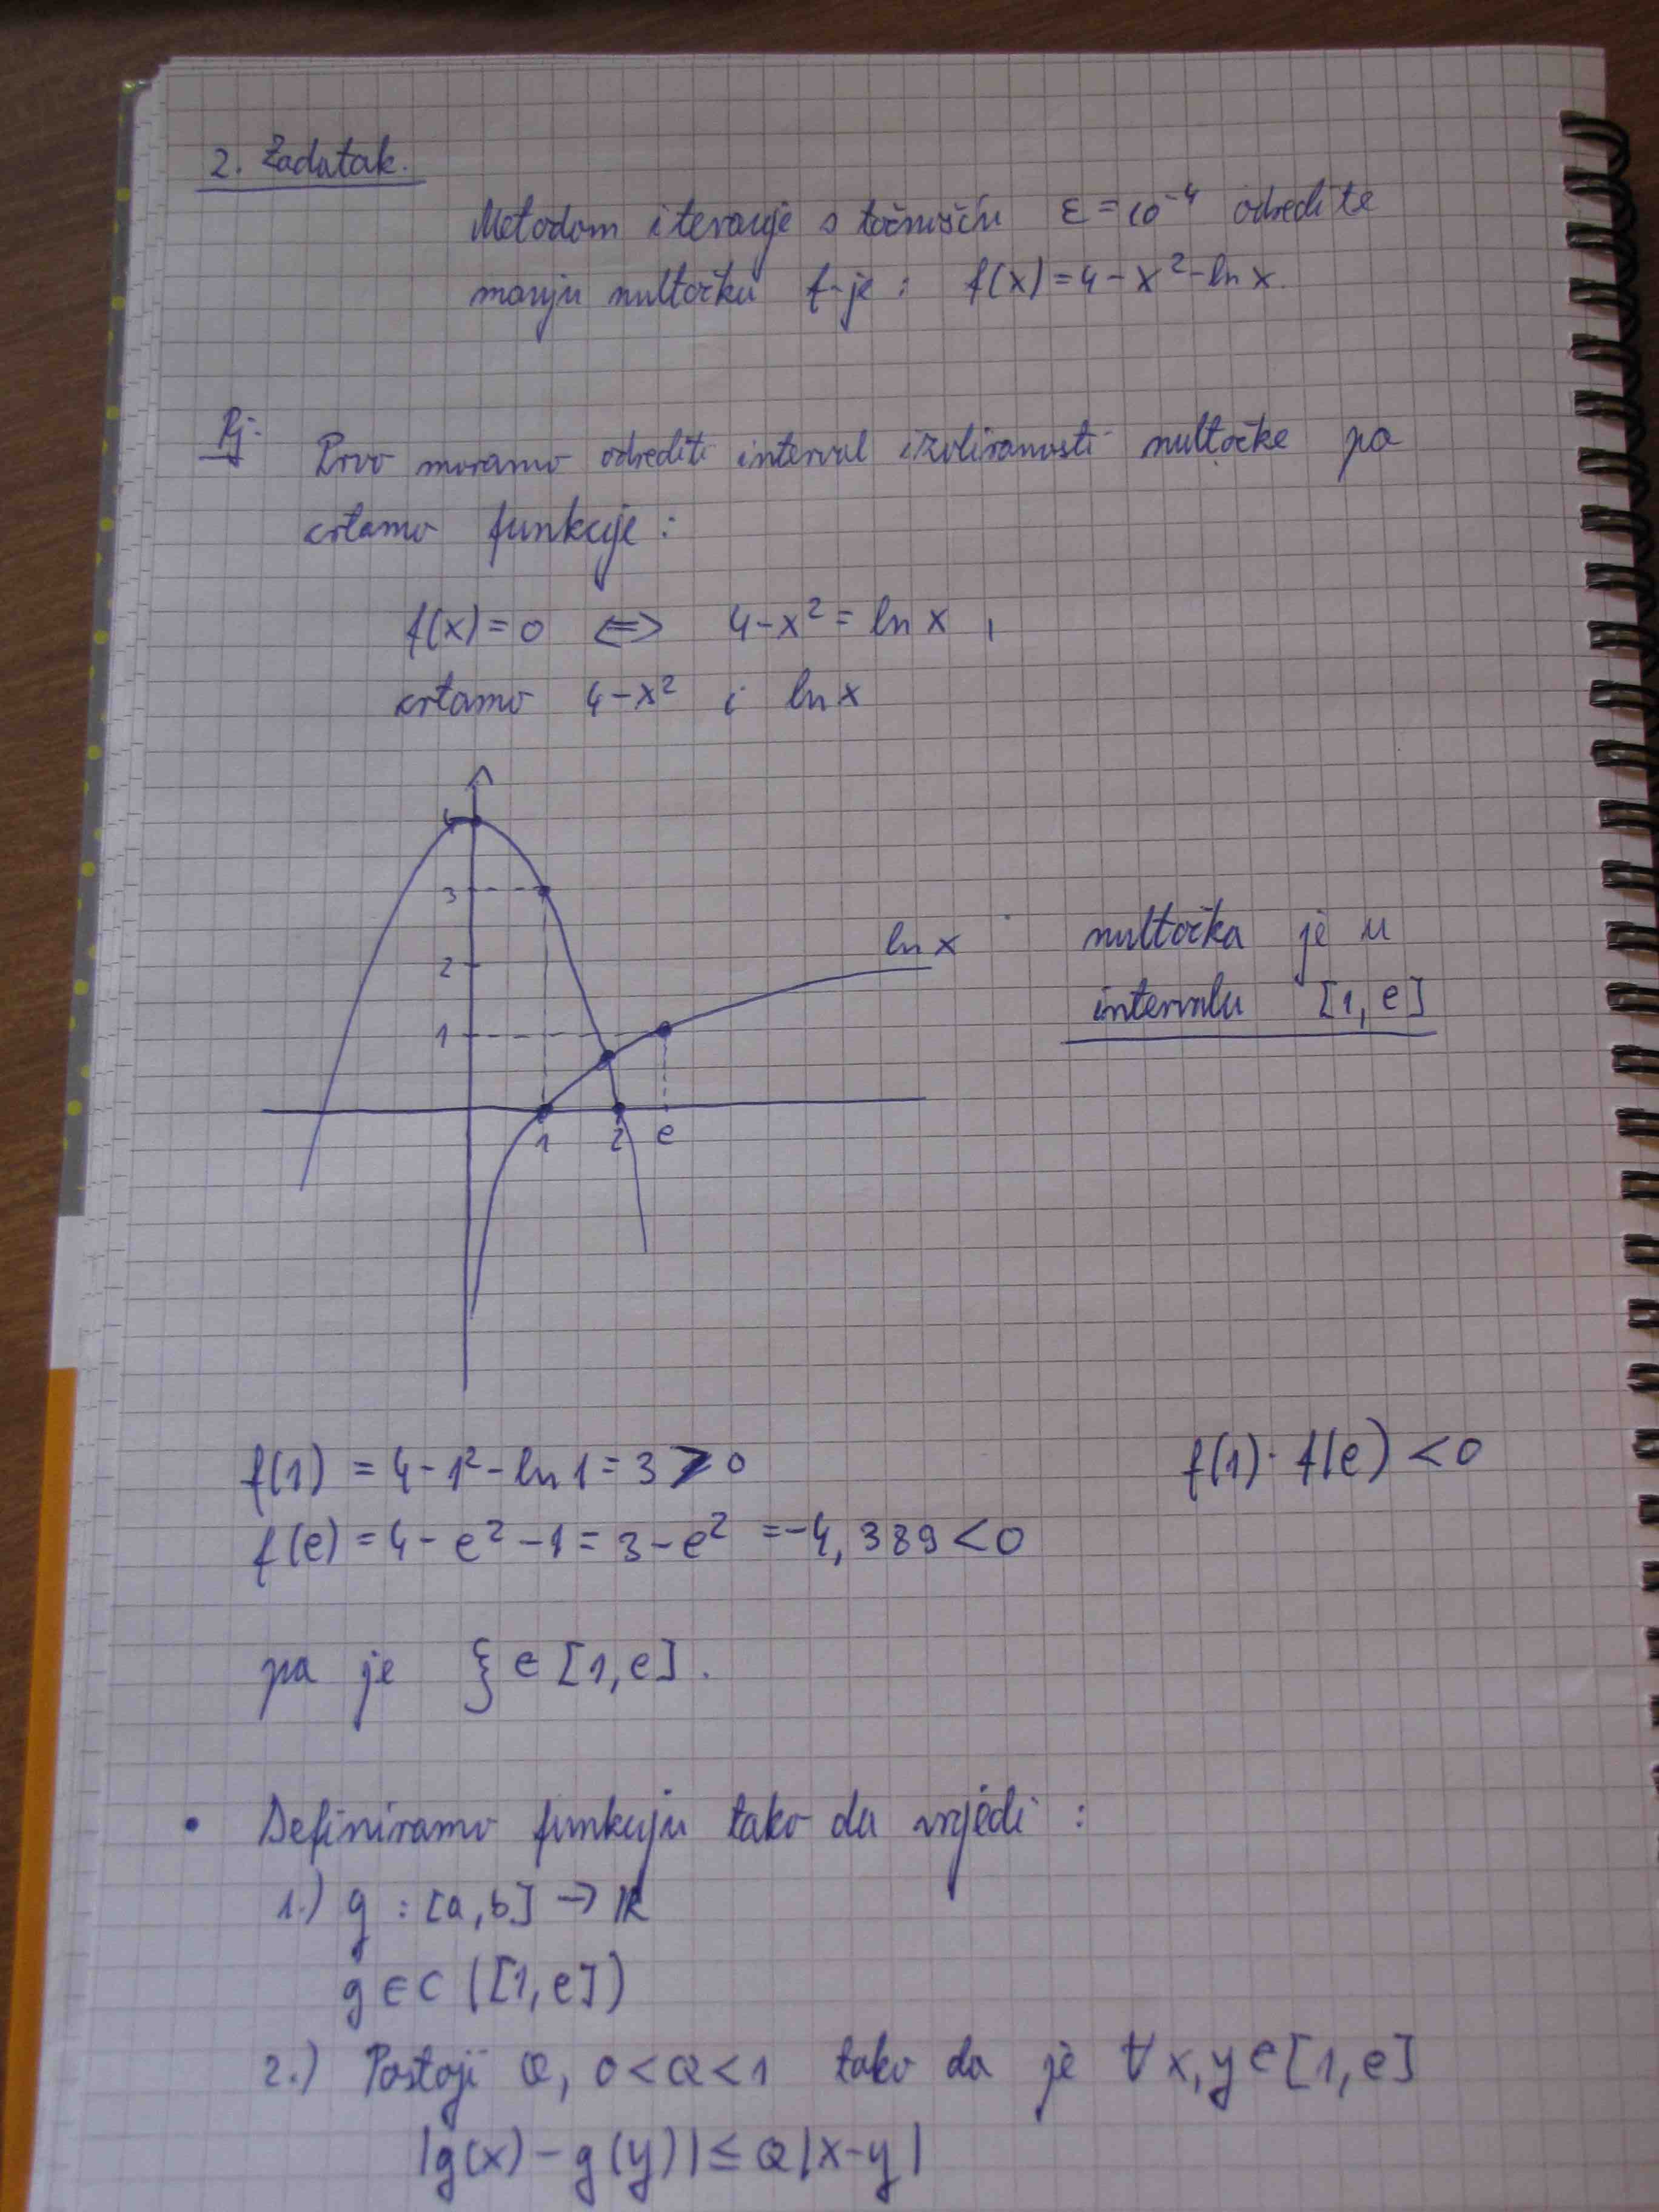 2. Zadatak.
Metodom iteracije s točnošću ε = 10⁻⁴ odredite
manju nultočku f-je : f(x) = 4 - x² - ln x.
Rj: Prvo moramo odrediti interval izoliranosti nultočke pa
crtamo funkcije :
f(x) = 0 <=> 4 - x² = ln x ,
crtamo 4 - x² i ln x
4
3
2
1
ln x
1 2 e
nultočka je u
intervalu [1, e]
f(1) = 4 - 1² - ln 1 = 3 > 0
f(1) · f(e) < 0
f(e) = 4 - e² - 1 = 3 - e² = -4,389 < 0
pa je ξ ∈ [1, e].
• Definiramo funkciju tako da vrijedi :
1.) g : [a, b] → ℝ
g ∈ C ([1, e])
2.) Postoji Q, 0 < Q < 1 tako da je ∀ x, y ∈ [1, e]
|g(x) - g(y)| ≤ Q |x - y|